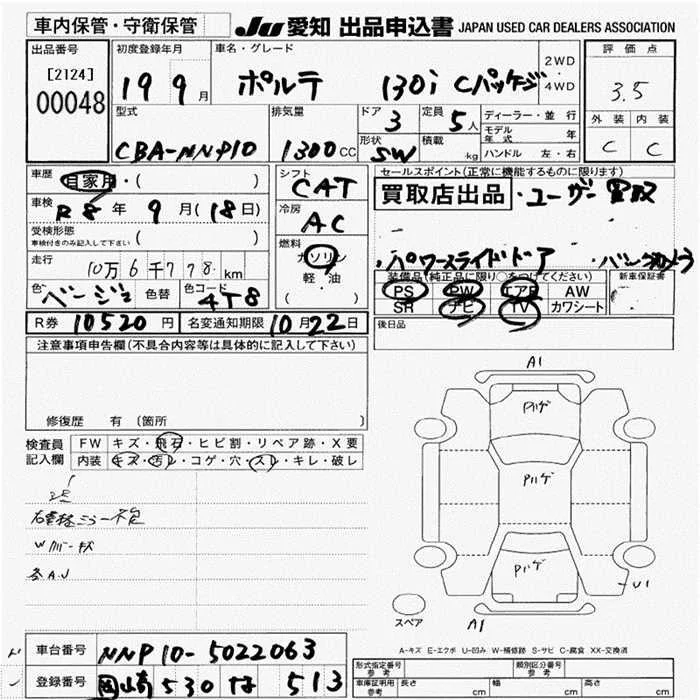 車内保管・守衛保管
JU 愛知 出品申込書 JAPAN USED CAR DEALERS ASSOCIATION
出品番号
[2124]
00048
初度登録年月
19 9月
車名・グレード
ポルテ 130i Cパッケージ
2WD
4WD
評価点
3.5
外装 内装
C C
型式
CBA-NNP10
排気量
1300CC
ドア
3
定員
5人
形状
SW
積載
kg
ディーラー・並行
モデル年式 年
ハンドル 左・右
車歴 自家用・( )
車検 R8年 9月(18日)
受検形態
車検付きのみ記入して下さい ( )
走行 10万6千778km
色 ベージュ 色替 色コード 4T8
シフト
CAT
冷房
AC
燃料
ガソリン
軽油
( )
セールスポイント(正常に機能するものに限ります)
買取店出品・ユーザー買取
・パワースライドドア
装備品(純正品に限り○をつけてください)
PS PW エアB AW
SR ナビ TV カワシート
新車保証書
後日品
R券 10520円 名変通知期限 10月22日
注意事項申告欄(不具合内容等は具体的に記入して下さい)
修復歴 有 〔箇所 〕
検査員記入欄
FW キズ・飛石・ヒビ割・リペア跡・X要
内装 キズ・汚レ・コゲ・穴・スレ・キレ・破レ
Wカバーキズ
各A.U
A1
Pハゲ
Pハゲ
Pハゲ
U1
A1
スペア
A-キズ E-エクボ U-凹み W-補修跡 S-サビ C-腐食 XX-交換済
車台番号 NNP10-5022063
登録番号 岡崎 530 な 513
形式指定番号 参考
類別区分番号 参考
車庫証明用 参考 長さ cm 幅 cm 高さ cm